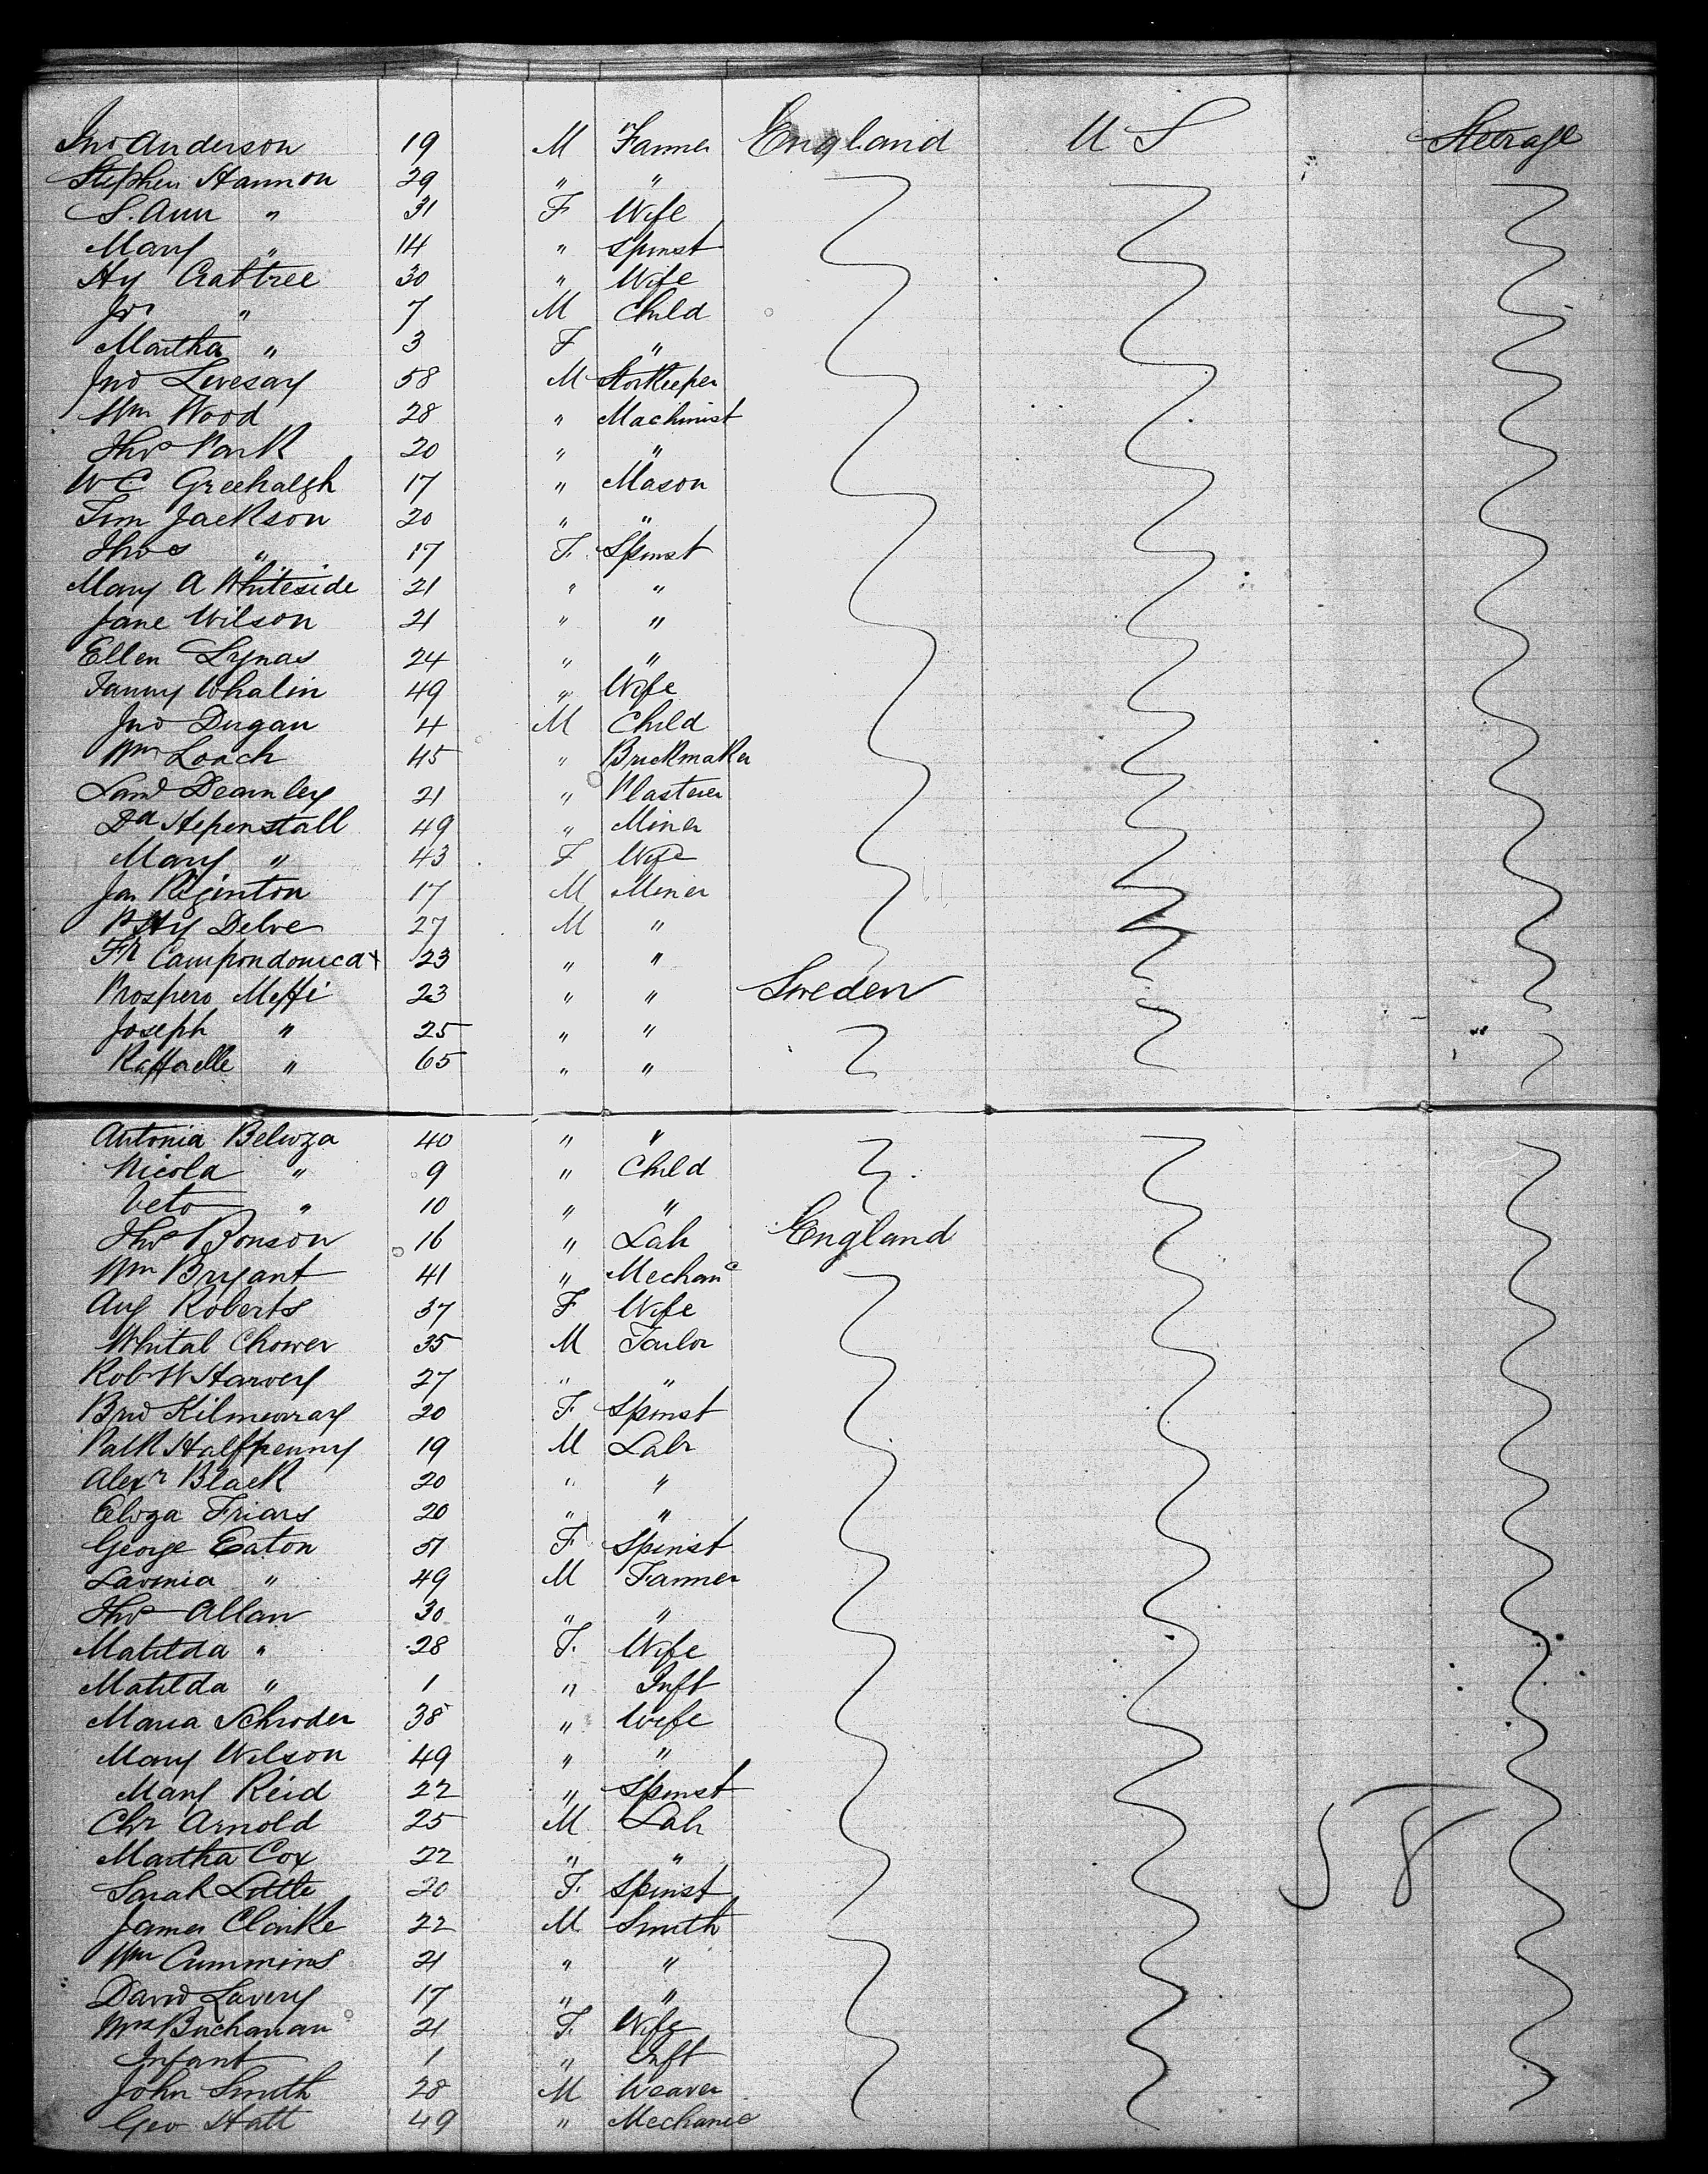 Jno Anderson 19 M Farmer England U S Steerage
Stephen Hannon 29 " "
S. Ann " 31 F Wife
Mary " 14 " Spinst
Hy Crabtree 30 " Wife
Jos " 7 M Child
Martha " 3 F "
Jno Livesay 58 M Storkeeper
Wm Wood 28 " Machinist
Thos Park 20 " "
W C Greehalgh 17 " Mason
Tim Jackson 20 " "
Thos " 17 F. Spinst
Mary A Whiteside 21 " "
Jane Wilson 21 " "
Ellen Lynas 24 " "
Fanny Whalin 49 " Wife
Jno Dugan 4 M Child
Wm Loach 45 " Brickmaker
Dearnley 21 " Plasterer
Dd Hepenstall 49 " Miner
Mary " 43 F Wife
Jas Riginton 17 M Miner
Hy Delve 27 M "
Fk Campondonica x 23 " "
Prospero Meffi 23 " " Sweden
Joseph " 25 " "
Raffaelle " 65 " "
Antonia Beloza 40 " "
Nicola " 9 " Child
Veto " 10 " "
Thos Bonson 16 " Lab England
Wm Bryant 41 " Mechanc
Aug Roberts 37 F Wife
Whital Chower 35 M Tailor
Rob W Harvey 27 " "
Brid Kilmurray 20 F Spinst
Patk Halfpenny 19 M Labr
Alexr Black 20 " "
Eliza Friars 20 " "
George Eaton 51 F Spinist
Lavinia " 49 M Farmer
Thos Allan 30 " "
Matilda " 28 F. Wife
Matilda " 1 " Inft
Maria Schroder 38 " Wife
Mary Wilson 49 " "
Mary Reid 22 " Spinst
Chr Arnold 25 M Lab 58
Martha Cox 22 " "
Sarah Little 20 F. Spinst
James Clarke 22 M Smith
Wm Cummins 21 " "
David Lavery 17 " "
Mrs Buchanan 21 F. Wife
Infant 1 " Inft
John Smith 28 M Weaver
Geo Hatt 49 " Mechanic